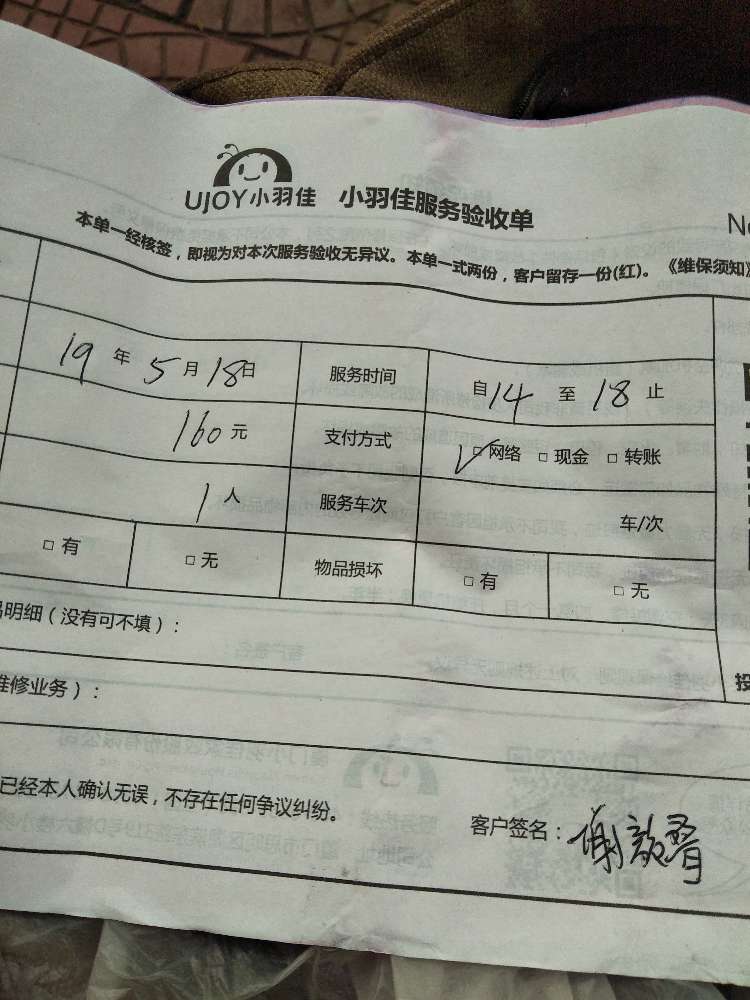 UJOY小羽佳 小羽佳服务验收单
No
本单一经核签，即视为对本次服务验收无异议。本单一式两份，客户留存一份(红)。《维保须知》
19 年 5 月 18 日 服务时间 自 14 至 18 止
160 元 支付方式 ☑ 网络 □ 现金 □ 转账
1 人 服务车次 车/次
□ 有 □ 无 物品损坏 □ 有 □ 无
明细（没有可不填）：
维修业务）：
投
已经本人确认无误，不存在任何争议纠纷。
客户签名：谢